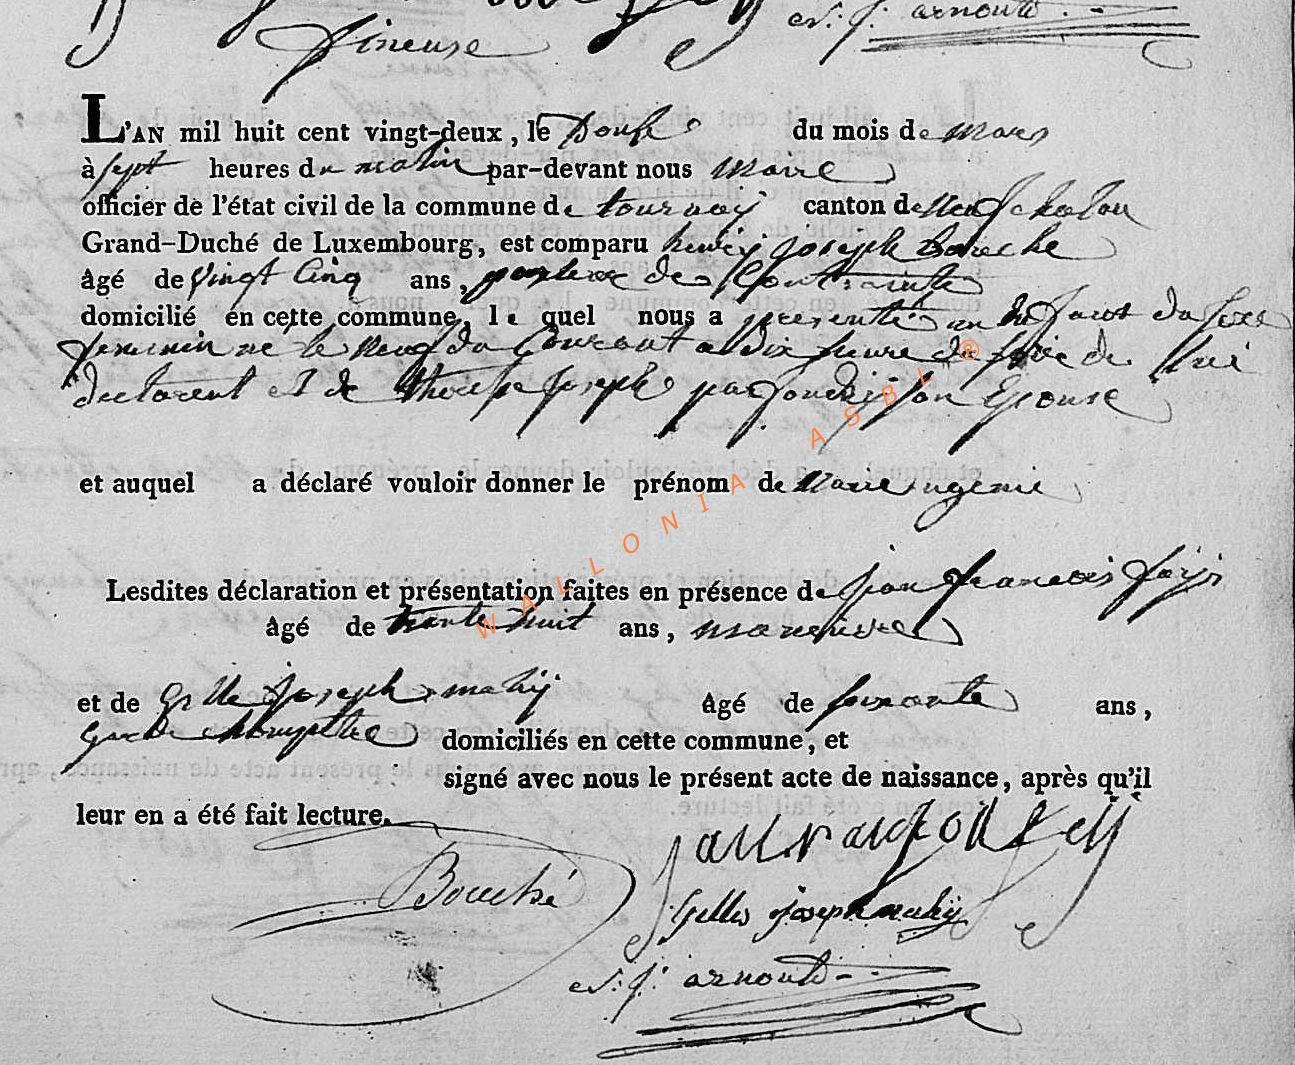 fineuse
N: J: arnould
L'AN mil huit cent vingt-deux, le Douse du mois de mars
à sept heures du matin par-devant nous maire
officier de l'état civil de la commune de tournay canton de Neufchatau
Grand-Duché de Luxembourg, est comparu henry Joseph Bouche
âgé de vingt Cinq ans, porteur de Contrainte
domicilié en cette commune, le quel nous a presenté un du sexe
femenin né le neuf du Courant a dix heure du soire de lui
declarent et de therese Joseph son Epouse
et auquel a déclaré vouloir donner le prénom de Marie ugenie
Lesdites déclaration et présentation faites en présence de jean francois
âgé de trante huit ans,
et de Gille Joseph mahy âgé de soixante ans,
Garde domiciliés en cette commune, et
signé avec nous le présent acte de naissance, après qu'il
leur en a été fait lecture.
Bouché
Gelles joseph mahy
N: J: arnould
WALLONIA ASBL ®